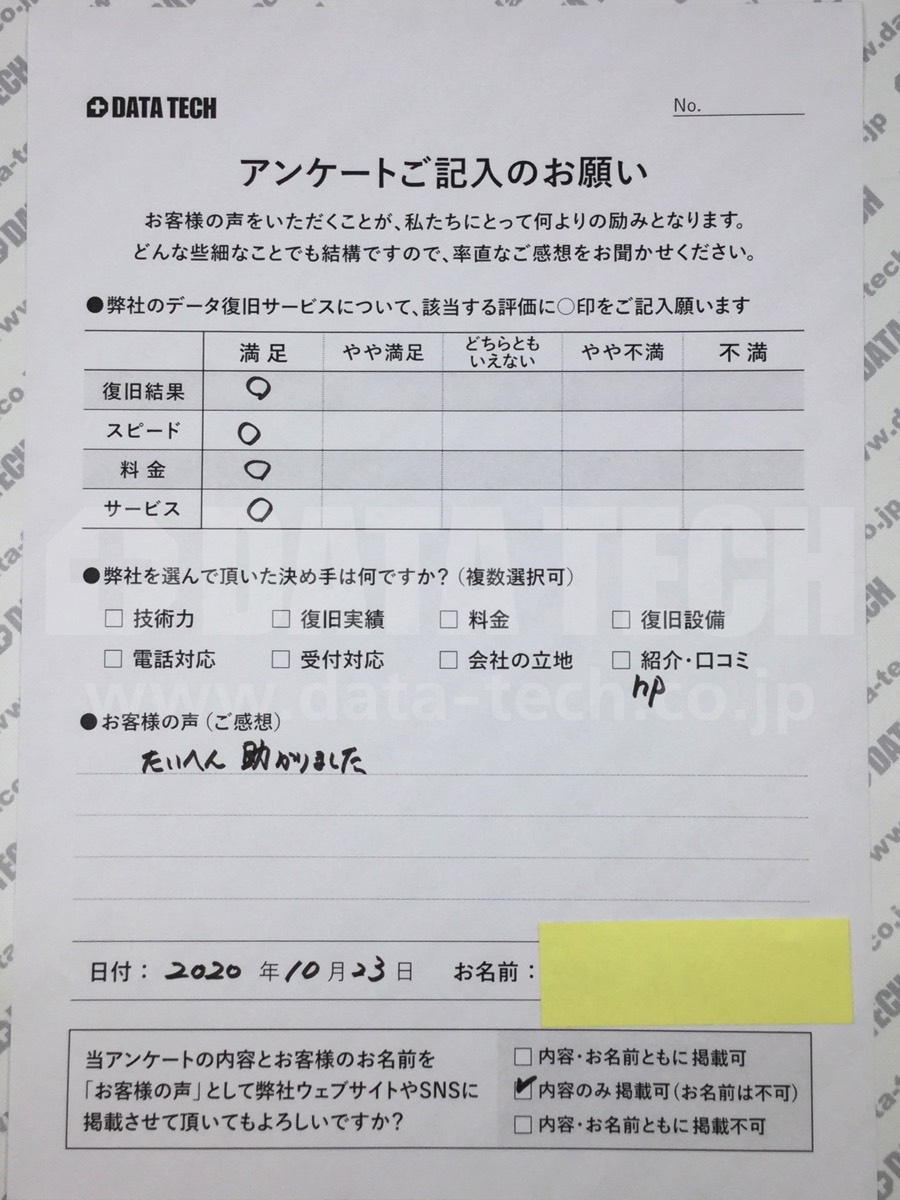 DATA TECH
No.
アンケートご記入のお願い
お客様の声をいただくことが、私たちにとって何よりの励みとなります。
どんな些細なことでも結構ですので、率直なご感想をお聞かせください。
●弊社のデータ復旧サービスについて、該当する評価に○印をご記入願います
満足 やや満足 どちらとも いえない やや不満 不満
復旧結果 ○
スピード ○
料金 ○
サービス ○
DATA TECH
●弊社を選んで頂いた決め手は何ですか?(複数選択可)
□ 技術力 □ 復旧実績 □ 料金 □ 復旧設備
□ 電話対応 □ 受付対応 □ 会社の立地 □ 紹介・口コミ
hp
www.data-tech.co.jp
●お客様の声(ご感想)
たいへん 助かりました
日付: 2020 年 10 月 23 日 お名前:
当アンケートの内容とお客様のお名前を
「お客様の声」として弊社ウェブサイトやSNSに
掲載させて頂いてもよろしいですか?
□ 内容・お名前ともに掲載可
☑ 内容のみ掲載可(お名前は不可)
□ 内容・お名前ともに掲載不可